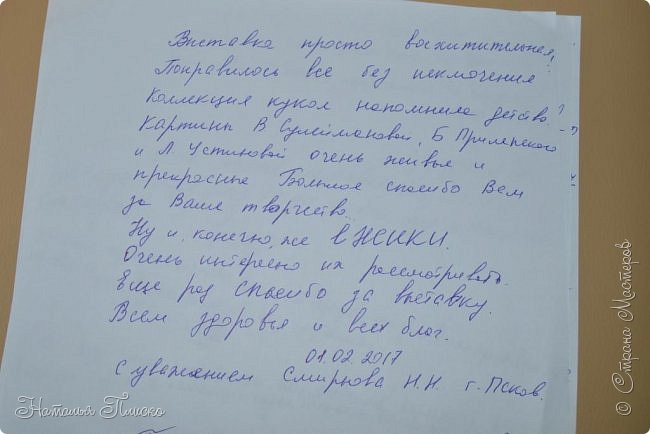 Выставка просто восхитительная!
Понравилось все без исключения
Коллекция кукол напомнила детство!
Картины В Сулеймановой, Б Прилепского
и Л Устиновой очень живые и
прекрасные Большое спасибо Вам
за Ваше творчество...
Ну и, конечно, же ЕЖИКИ.
Очень интересно их рассматривать.
Еще раз спасибо за выставку.
Всем здоровья и всех благ.
01.02.2017
С уважением Смирнова Н.Н. г. Псков.
Наталья Плиско
© Страна Мастеров